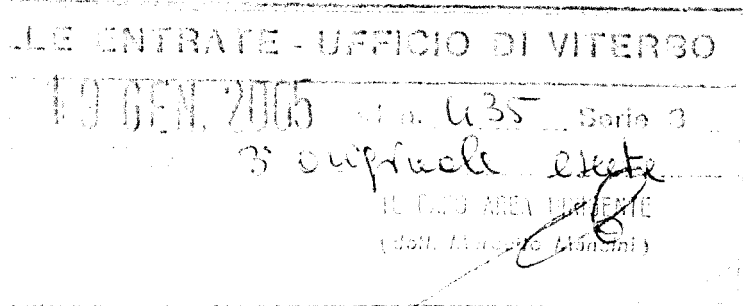 LLE ENTRATE - UFFICIO DI VITERBO
19 GEN. 2005 al n. 435 Serie 3
3° originale esente
IL CAPO AREA DIRIGENTE
(dott.